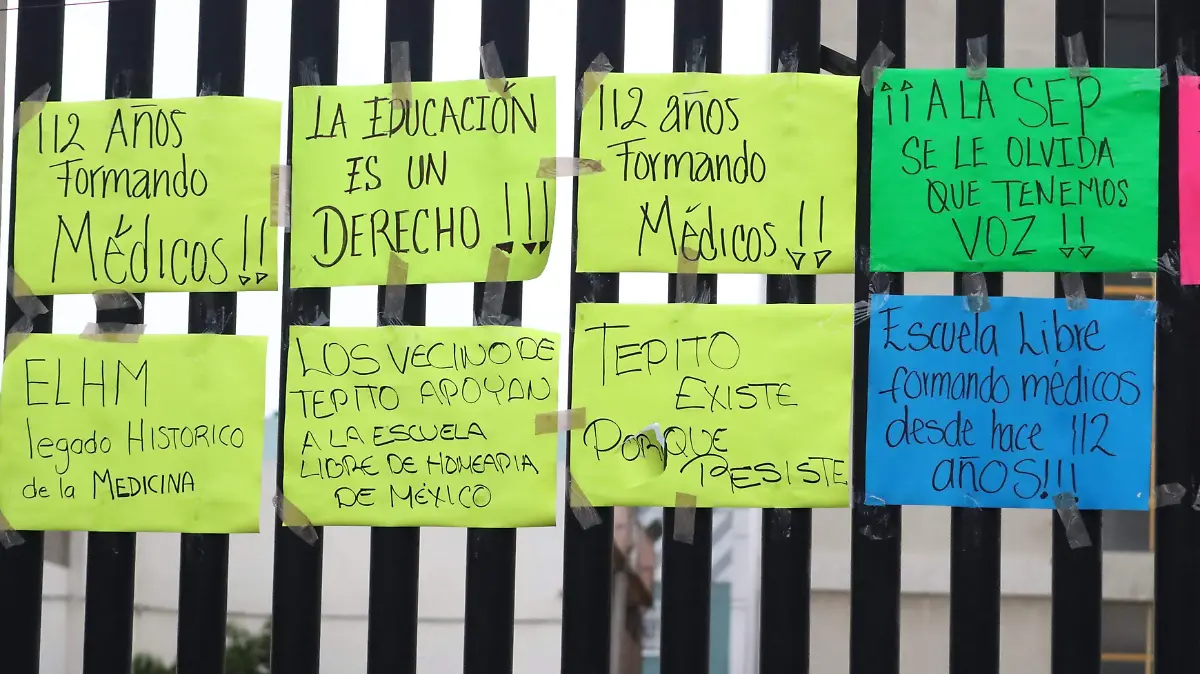 112 AÑOS
Formando
Médicos!!
LA EDUCACIÓN
ES UN
DERECHO!!!
112 años
Formando
Médicos!!
¡¡A LA SEP
SE LE OLVIDA
QUE TENEMOS
VOZ!!
ELHM
legado HISTORICO
de la MEDICINA
LOS VECINO DE
TEPITO APOYAN
A LA ESCUELA
LIBRE DE HOMEAPIA
DE MÉXICO
TEPITO
EXISTE
PORQUE
RESISTE
Escuela Libre
formando médicos
desde hace 112
años!!!